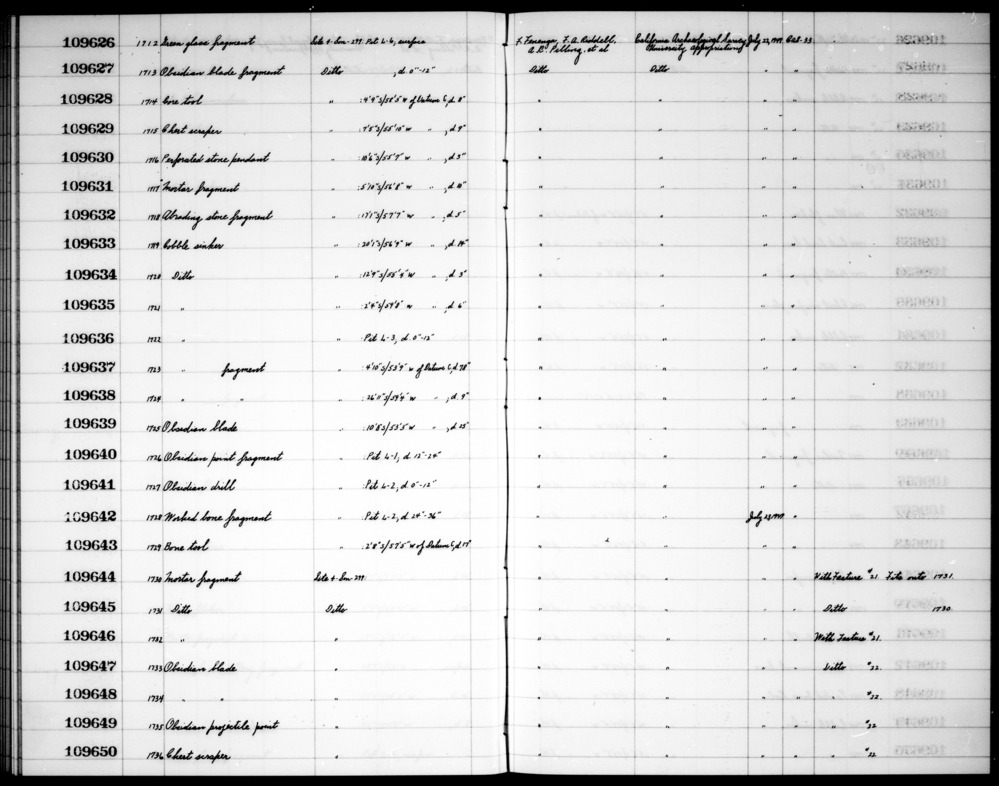 109626 1712 Green glass fragment Site 4-Son-299. Pit L-6, surface F. Fenenga, F. A. Riddell, California Archaeological Survey July 22, 1949. Acc. 33
A. B. Elsasser, et al University Appropriation
109627 1713 Obsidian blade fragment Ditto , d. 0"-12" Ditto Ditto " "
109628 1714 Core tool " :4'4"S/58'5"W of Datum C, d. 8" " " " "
109629 1715 Chert scraper " :7'5"S/55'10"W " , d. 7" " " " "
109630 1716 Perforated stone pendant " :10'6"S/55'7"W " , d. 3" " " " "
109631 1717 Mortar fragment " :5'10"S/56'8"W " , d. 10" " " " "
109632 1718 Abrading stone fragment " :17'1"S/57'7"W " , d. 5" " " " "
109633 1719 Cobble sinker " :20'1"S/56'9"W " , d. 14" " " " "
109634 1720 Ditto " :12'9"S/55'4"W " , d. 3" " " " "
109635 1721 " " :2'4"S/59'8"W " , d. 6" " " " "
109636 1722 " " :Pit L-3, d. 0"-12" " " " "
109637 1723 " fragment " :4'10"S/53'9"W of Datum C, d. 78" " " " "
109638 1724 " " " :26'11"S/59'4"W " , d. 9" " " " "
109639 1725 Obsidian blade " :10'8"S/55'5"W " , d. 15" " " " "
109640 1726 Obsidian point fragment " :Pit L-1, d. 12"-24" " " " "
109641 1727 Obsidian drill " :Pit L-2, d. 0"-12" " " " "
109642 1728 Worked bone fragment " :Pit L-2, d. 24"-36" " " July 23, 1949. "
109643 1729 Bone tool " :2'8"S/57'5"W of Datum C, d. 17" " " " "
109644 1730 Mortar fragment Site 4-Son-299. " " " " With Feature #21. Fits onto 1731.
109645 1731 Ditto Ditto " " " " Ditto 1730.
109646 1732 " " " " " " With Feature #21.
109647 1733 Obsidian blade " " " " " Ditto #22.
109648 1734 " " " " " " " " #22.
109649 1735 Obsidian projectile point " " " " " " #22
109650 1736 Chert scraper " " " " " " #22